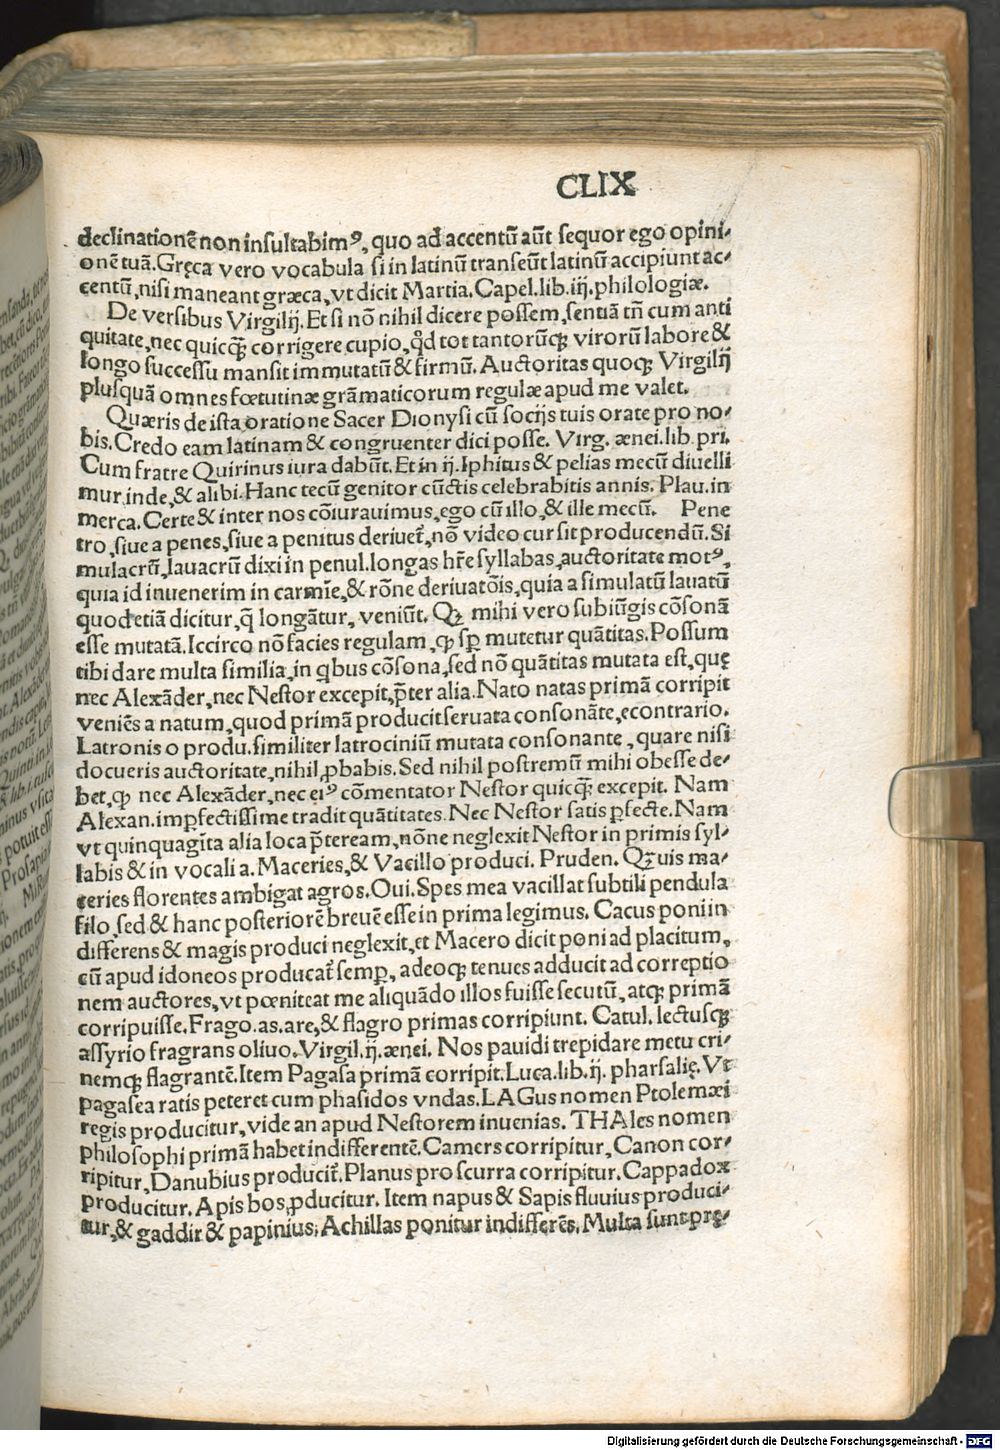 CLIX
declinationē non insultabimꝰ, quo ad accentū aūt sequor ego opini-
onē tuā. Gręca vero vocabula si in latinū transeūt latinū accipiunt ac-
centū, nisi maneant græca, vt dicit Martia. Capel. lib. iij. philologiæ.
De versibus Virgilij. Et si nō nihil dicere possem, sentiā tñ cum anti
quitate, nec quicꝗ̄ corrigere cupio, qd̄ tot tantorūcꝫ virorū labore &
longo successu mansit immutatū & firmū. Auctoritas quocꝫ Virgilij
plusquā omnes fœtutinæ grāmaticorum regulæ apud me valet.
Quæris de ista oratione Sacer Dionysi cū socijs tuis orate pro no-
bis. Credo eam latinam & congruenter dici posse. Virg. ænei. lib. pri.
Cum fratre Quirinus iura dabūt. Et in ij. Iphitus & pelias mecū diuelli
mur inde, & alibi. Hanc tecū genitor cūctis celebrabitis annis. Plau. in
merca. Certe & inter nos cōiurauimus, ego cū illo, & ille mecū. Pene
tro, siue a penes, siue a penitus deriuet᷑, nō video cur sit producendū. Si
mulacrū, lauacrū dixi in penul. longas hr̄e syllabas, auctoritate motꝰ,
quia id inuenerim in carmīe, & rōne deriuatōis, quia a simulatū lauatū
quod etiā dicitur, q̄ longātur, veniūt. Qꝫ mihi vero subiūgis cōsonā
esse mutatā. Iccirco nō facies regulam, ꝙ sp̄ mutetur quātitas. Possum
tibi dare multa similia, in qbus cōsona, sed nō quātitas mutata est, quę
nec Alexāder, nec Nestor excepit, p̄ter alia. Nato natas primā corripit
veniēs a natum, quod primā producit seruata consonāte, econtrario.
Latronis o produ. similiter latrociniū mutata consonante, quare nisi
docueris auctoritate, nihil ꝓbabis. Sed nihil postremū mihi obesse de-
bet, ꝙ nec Alexāder, nec eiꝰ cōmentator Nestor quicꝗ̄ excepit. Nam
Alexan. imꝑfectissime tradit quātitates. Nec Nestor satis ꝑfecte. Nam
vt quinquagīta alia loca p̄teream, nōne neglexit Nestor in primis syl-
labis & in vocali a. Maceries, & Vacillo produci. Pruden. Qꝫuis ma-
ceries florentes ambigat agros. Oui. Spes mea vacillat subtili pendula
filo, sed & hanc posteriorē breuē esse in prima legimus. Cacus poni in
differens & magis produci neglexit, et Macero dicit poni ad placitum,
cū apud idoneos producat᷑ semꝑ, adeocꝫ tenues adducit ad correptio
nem auctores, vt pœniteat me aliquādo illos fuisse secutū, atcꝫ primā
corripuisse. Frago. as. are, & flagro primas corripiunt. Catul. lectuscꝫ
assyrio fragrans oliuo. Virgil. ij. ænei. Nos pauidi trepidare metu cri-
nemcꝫ flagrantē. Item Pagasa primā corripit. Luca. lib. ij. pharsalię. Vt
pagasea ratis peteret cum phasidos vndas. LAGus nomen Ptolemæi
regis producitur, vide an apud Nestorem inuenias. THAles nomen
philosophi primā habet indifferentē. Camers corripitur, Canon cor-
ripitur, Danubius producit᷑. Planus pro scurra corripitur. Cappadox
producitur. Apis bos ꝓducitur. Item napus & Sapis fluuius produci-
tur, & gaddir & papinius. Achillas ponitur indifferēs. Multa sunt prę-
Digitalisierung gefördert durch die Deutsche Forschungsgemeinschaft - DFG